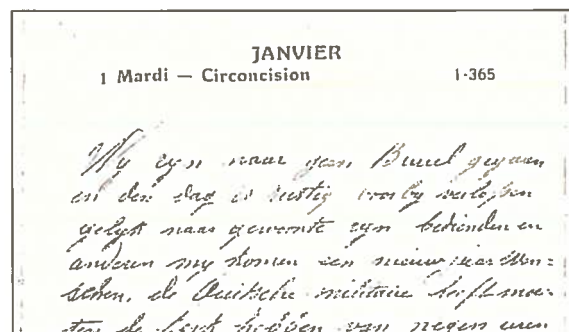 JANVIER
1 Mardi — Circoncision 1-365
Wy zyn naar geen Bureel gegaan
en den dag is rustig voorby verlopen
gelyk naar gewoonte zyn bedienden en
anderen my komen een nieuwjaar wen=
schen, de Duitsche militaire heeft moe=
ten de kerk hebben van negen uren